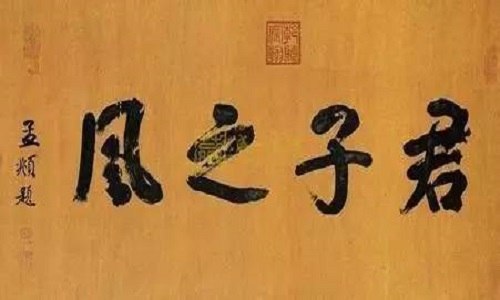 君子之風
孟頫題